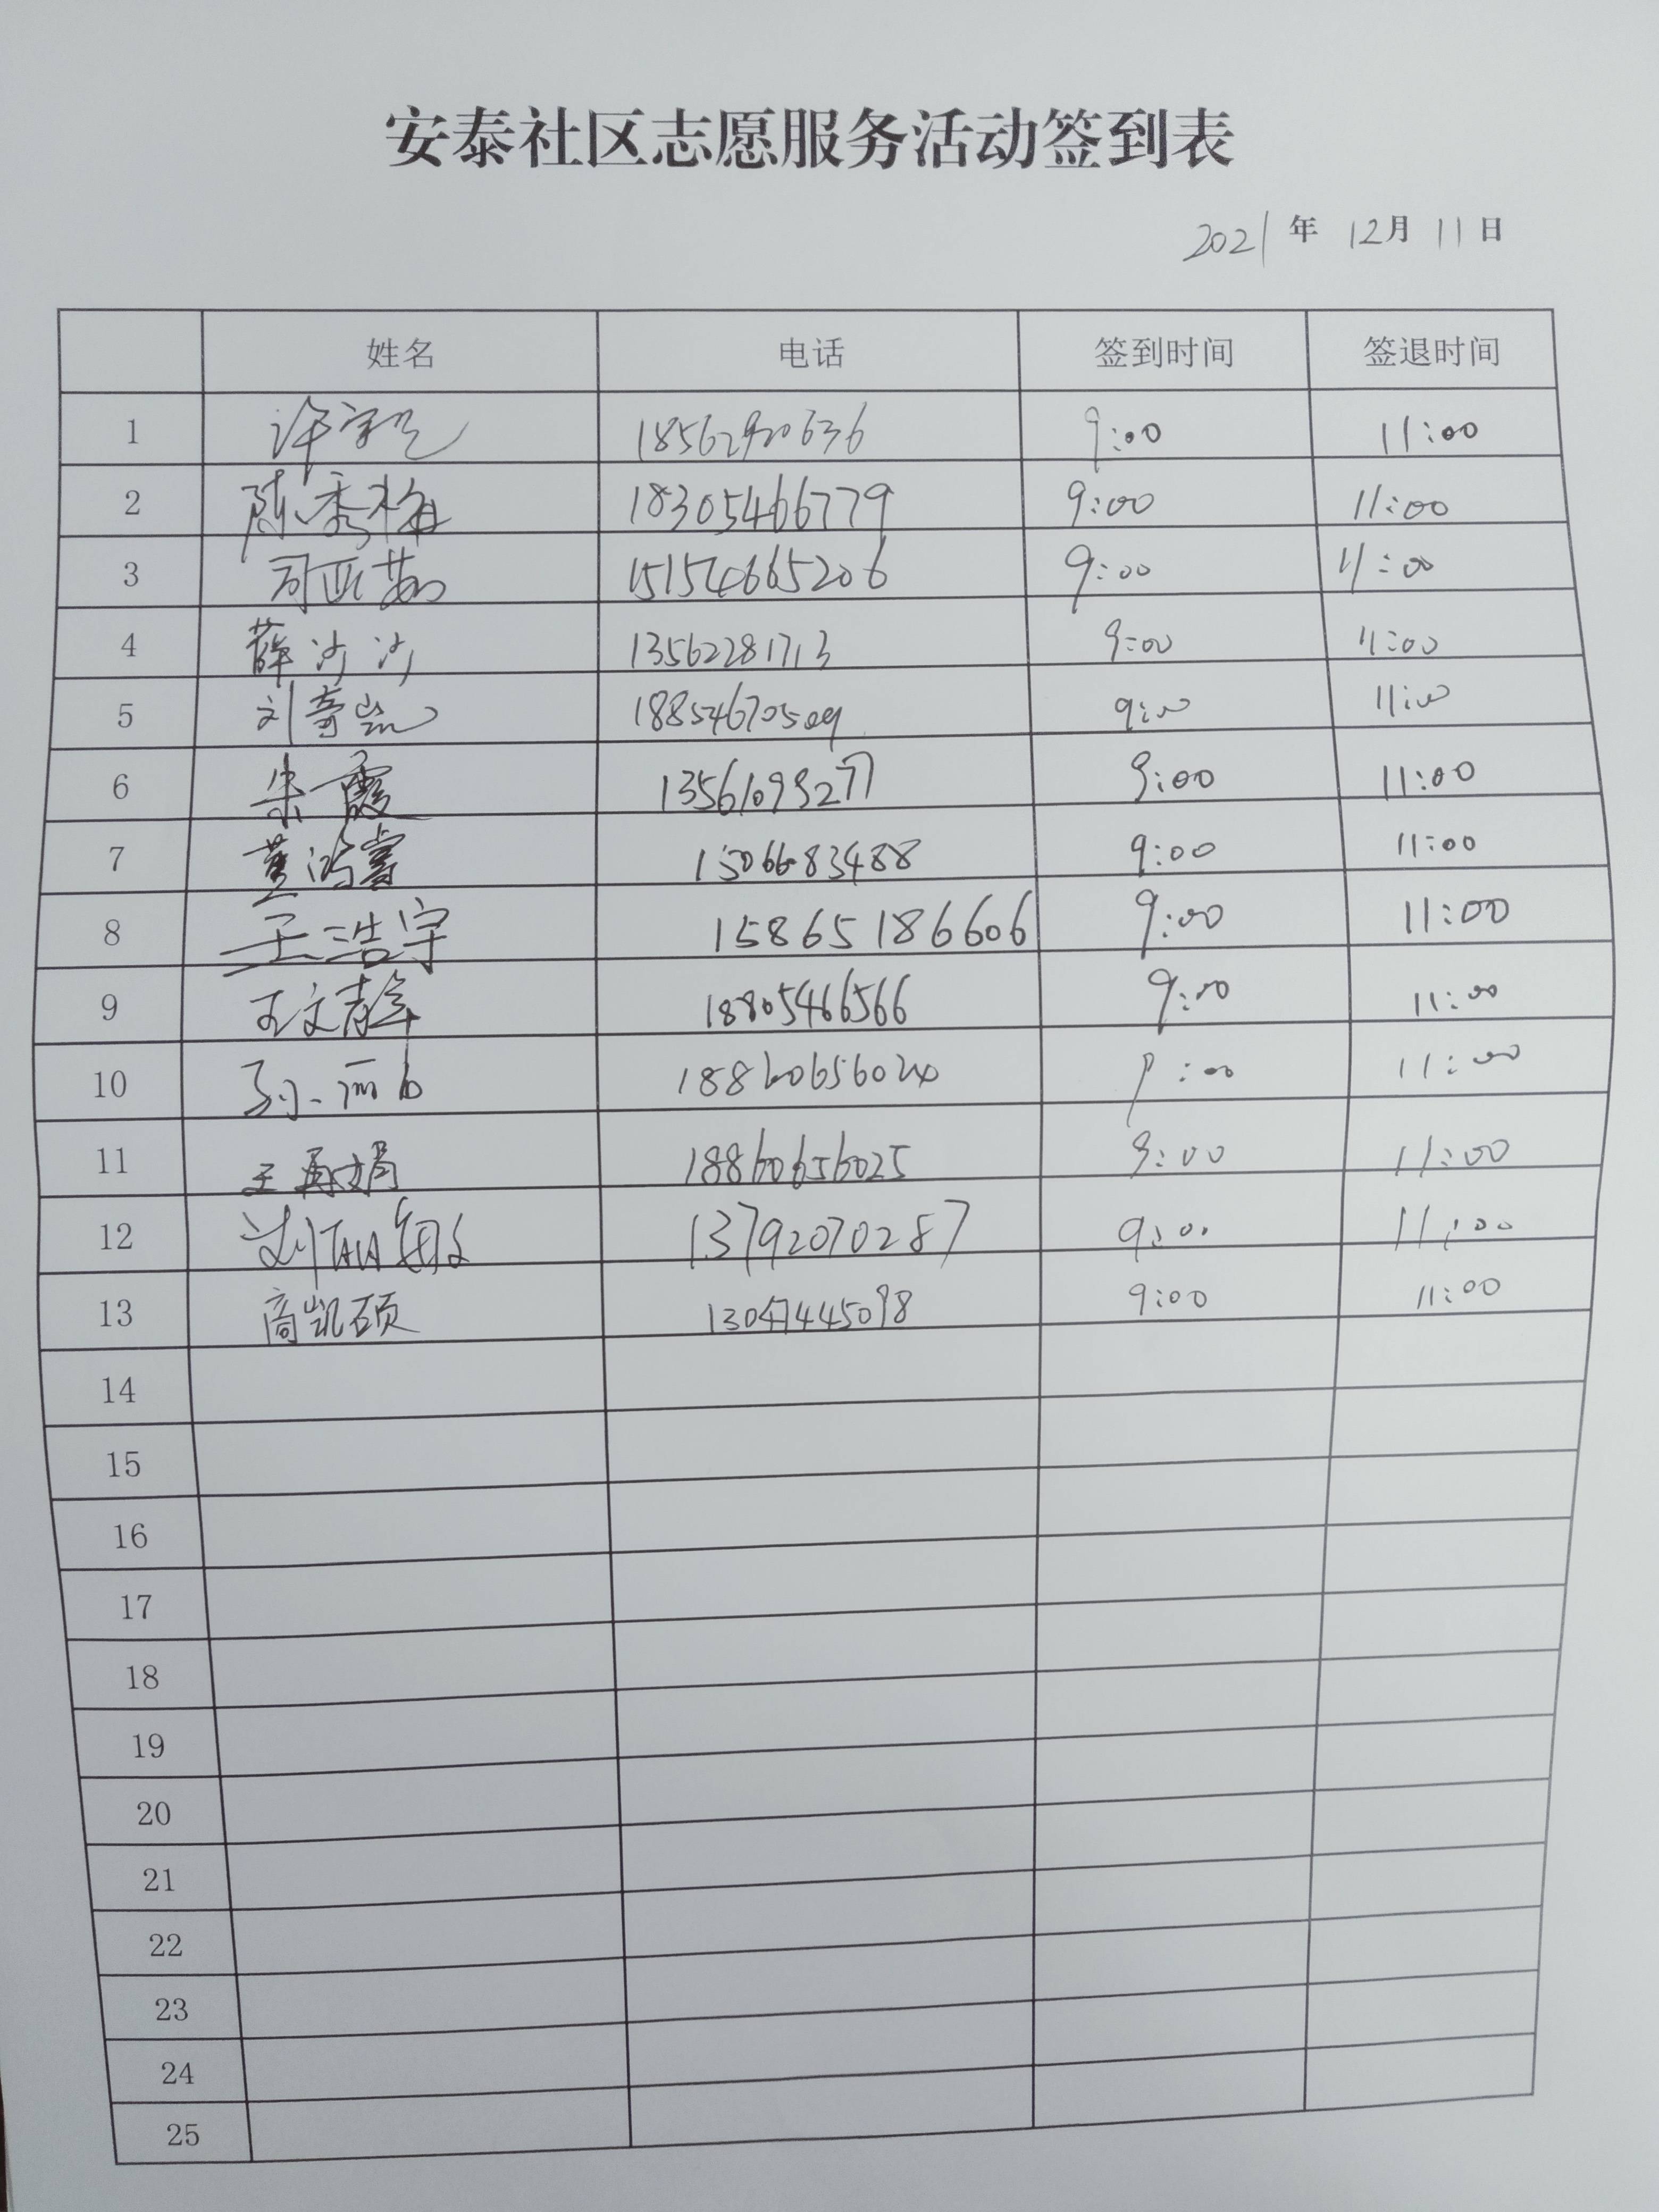 安泰社区志愿服务活动签到表
2021年 12月 11日
姓名 电话 签到时间 签退时间
1 许 18562920636 9:00 11:00
2 陈秀梅 18305466779 9:00 11:00
3 司亚茹 15154665206 9:00 11:00
4 薛沙沙 13562281713 9:00 11:00
5 刘奇凯 18854670509 9:00 11:00
6 朱霞 13561093277 9:00 11:00
7 董鸿嵩 15066083488 9:00 11:00
8 王浩宇 15865186606 9:00 11:00
9 王文静 18805466566 9:00 11:00
10 孙 18860656020 9:00 11:00
11 王再娟 18860656025 9:00 11:00
12 刘 13792070287 9:00 11:00
13 商凯硕 13047445098 9:00 11:00
14
15
16
17
18
19
20
21
22
23
24
25